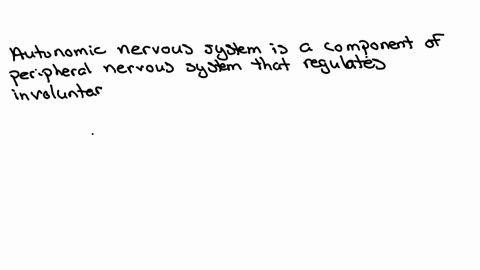 Autonomic nervous system is a component of
peripheral nervous system that regulates
involuntar